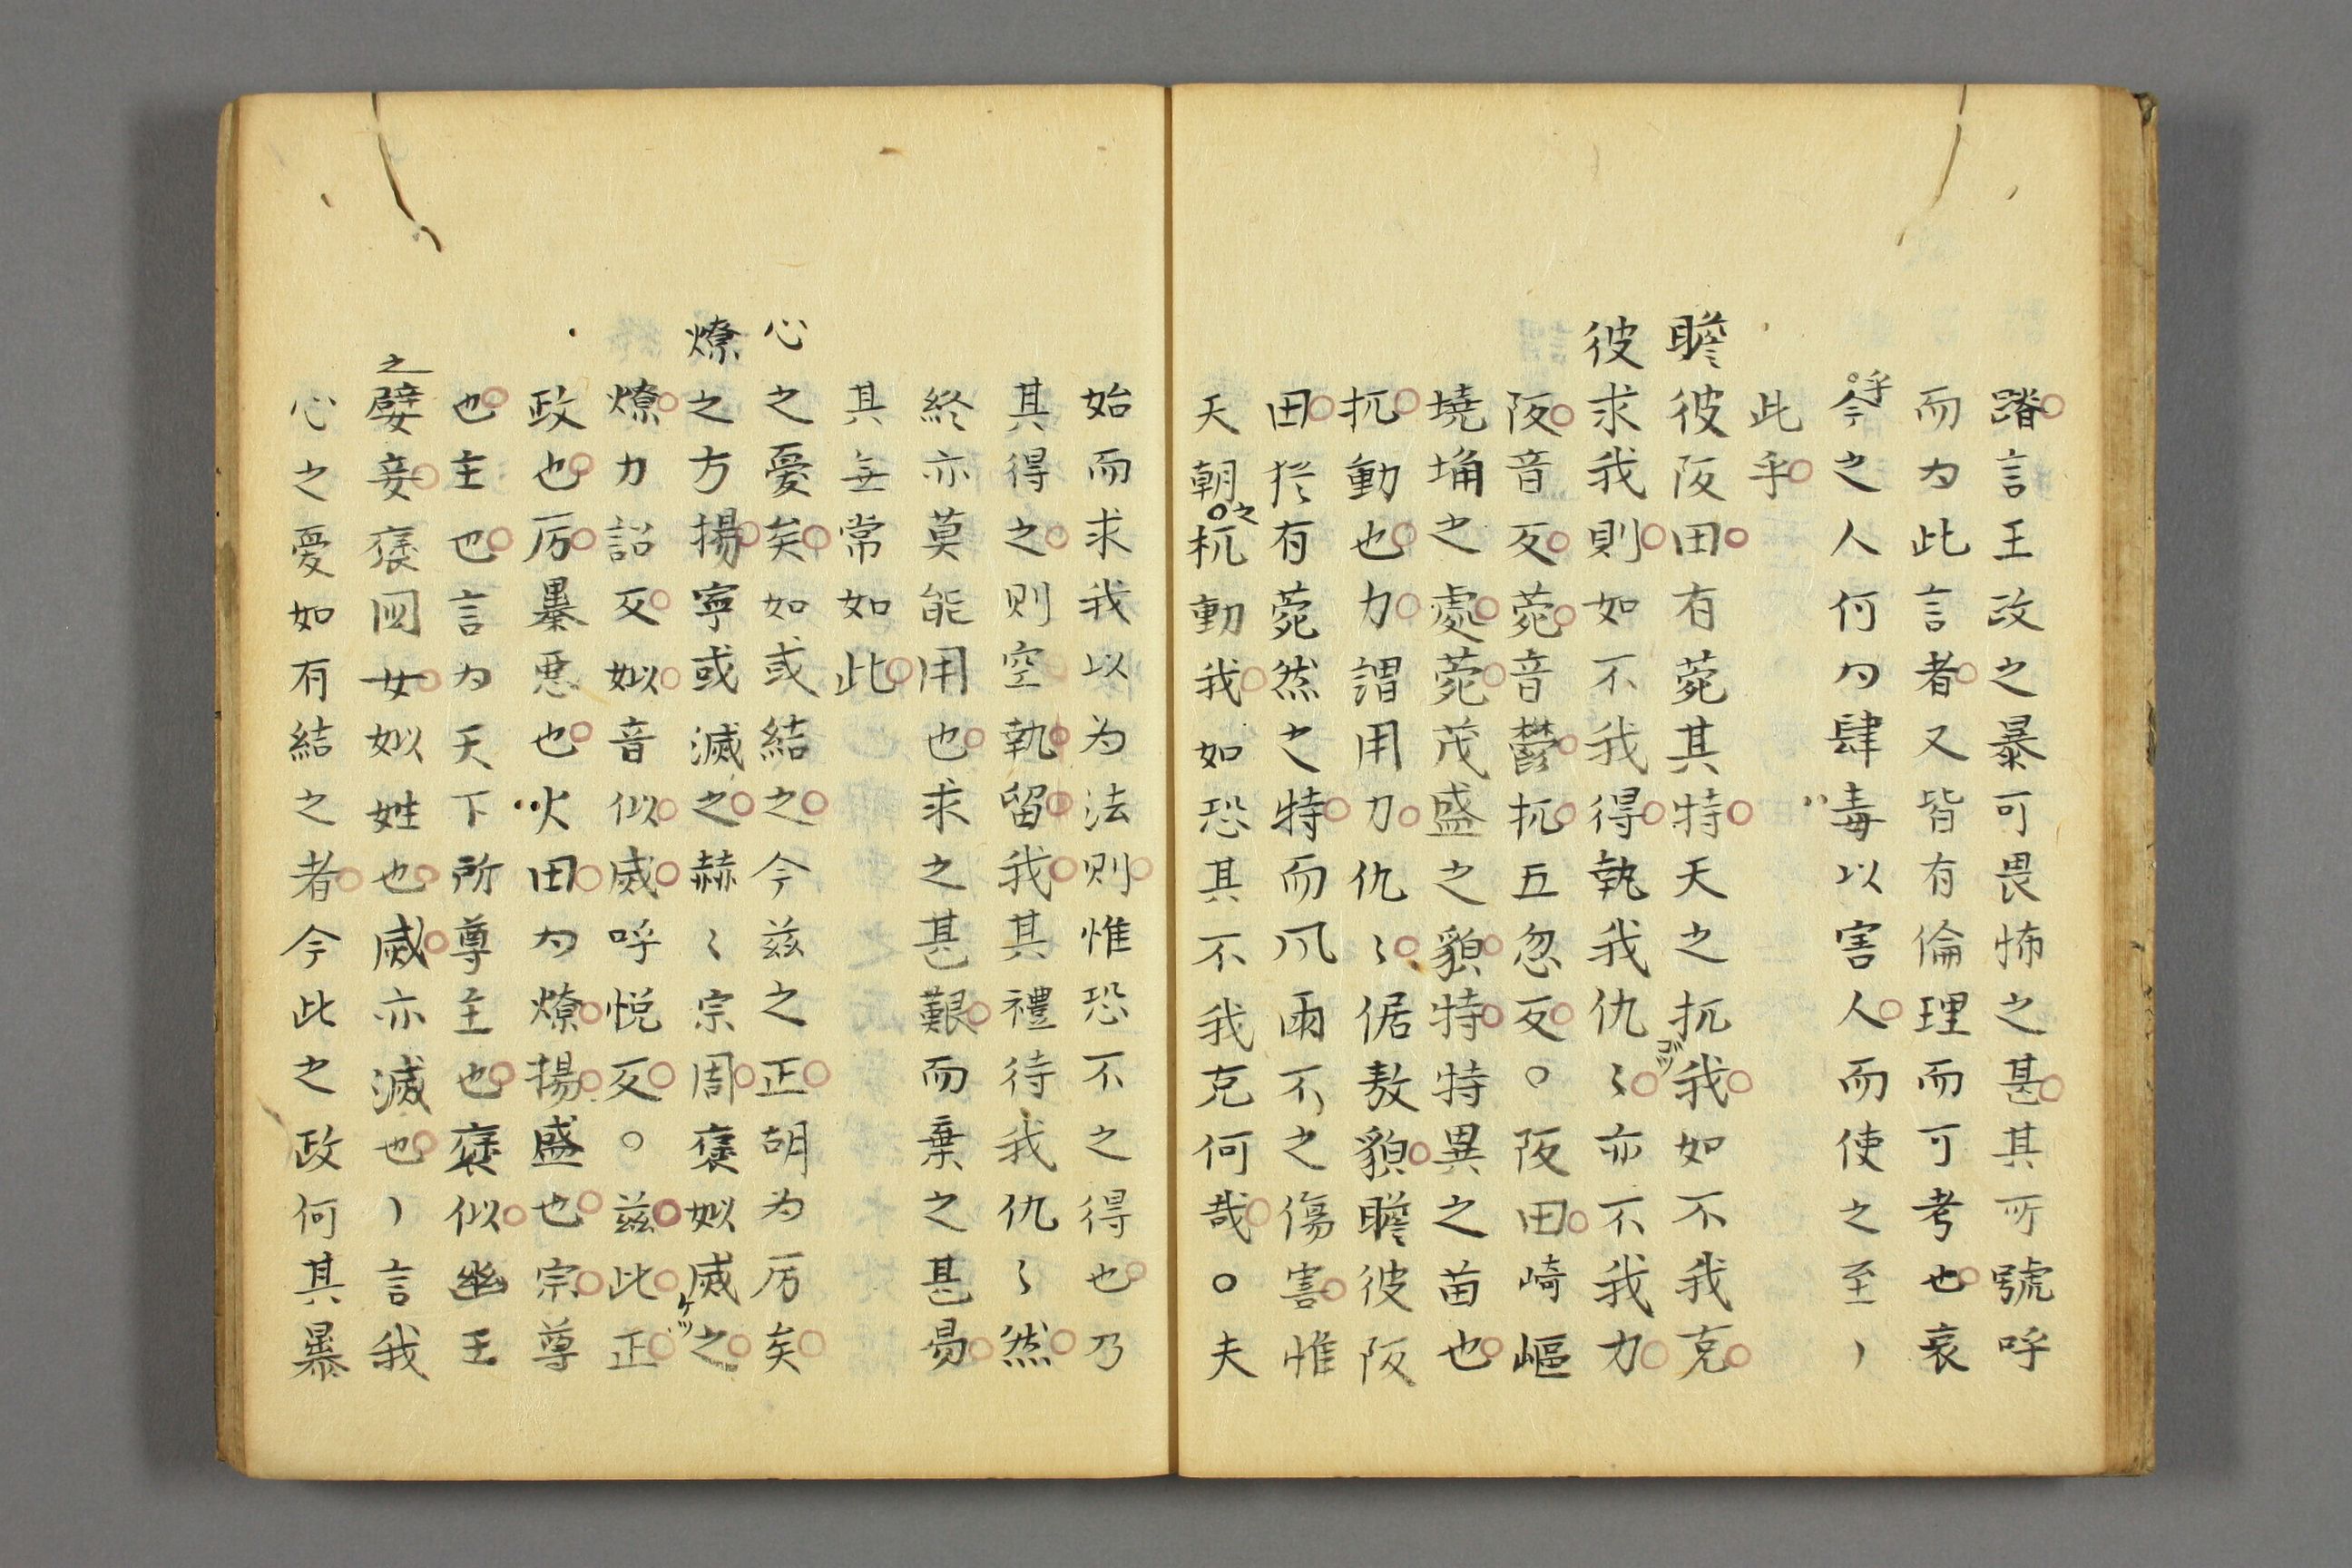 蹐言王政之暴可畏怖之甚其所號呼
而为此言者又皆有倫理而可考也哀
呼今之人何为肆毒以害人而使之至丶
此乎
瞻彼阪田有菀其特天之扤我如不我克
ゴツ
彼求我則如不我得執我仇〻亦不我力
阪音反菀音鬱扤五忽反○阪田崎嶇
墝埆之處菀茂盛之貌特特異之苗也
扤動也力謂用力仇〻倨敖貌瞻彼阪
田猶有菀然之特而风雨不之傷害惟
天朝之杌動我如恐其不我克何哉○夫
始而求我以为法則惟恐不之得也乃
其得之則空執留我其禮待我仇〻然
終亦莫能用也求之甚艱而棄之甚易
其無常如此
心之憂矣如或結之今茲之正胡为厉矣
燎之方揚寧或滅之赫〻宗周褒姒烕之
ケツ
燎力詔反姒音似烕呼悦反○茲此正
政也厉暴悪也火田为燎揚盛也宗尊
也主也言为天下所尊主也褒似幽王
之嬖妾褒国女姒姓也烕亦滅也丶言我
心之憂如有結之者今此之政何其暴